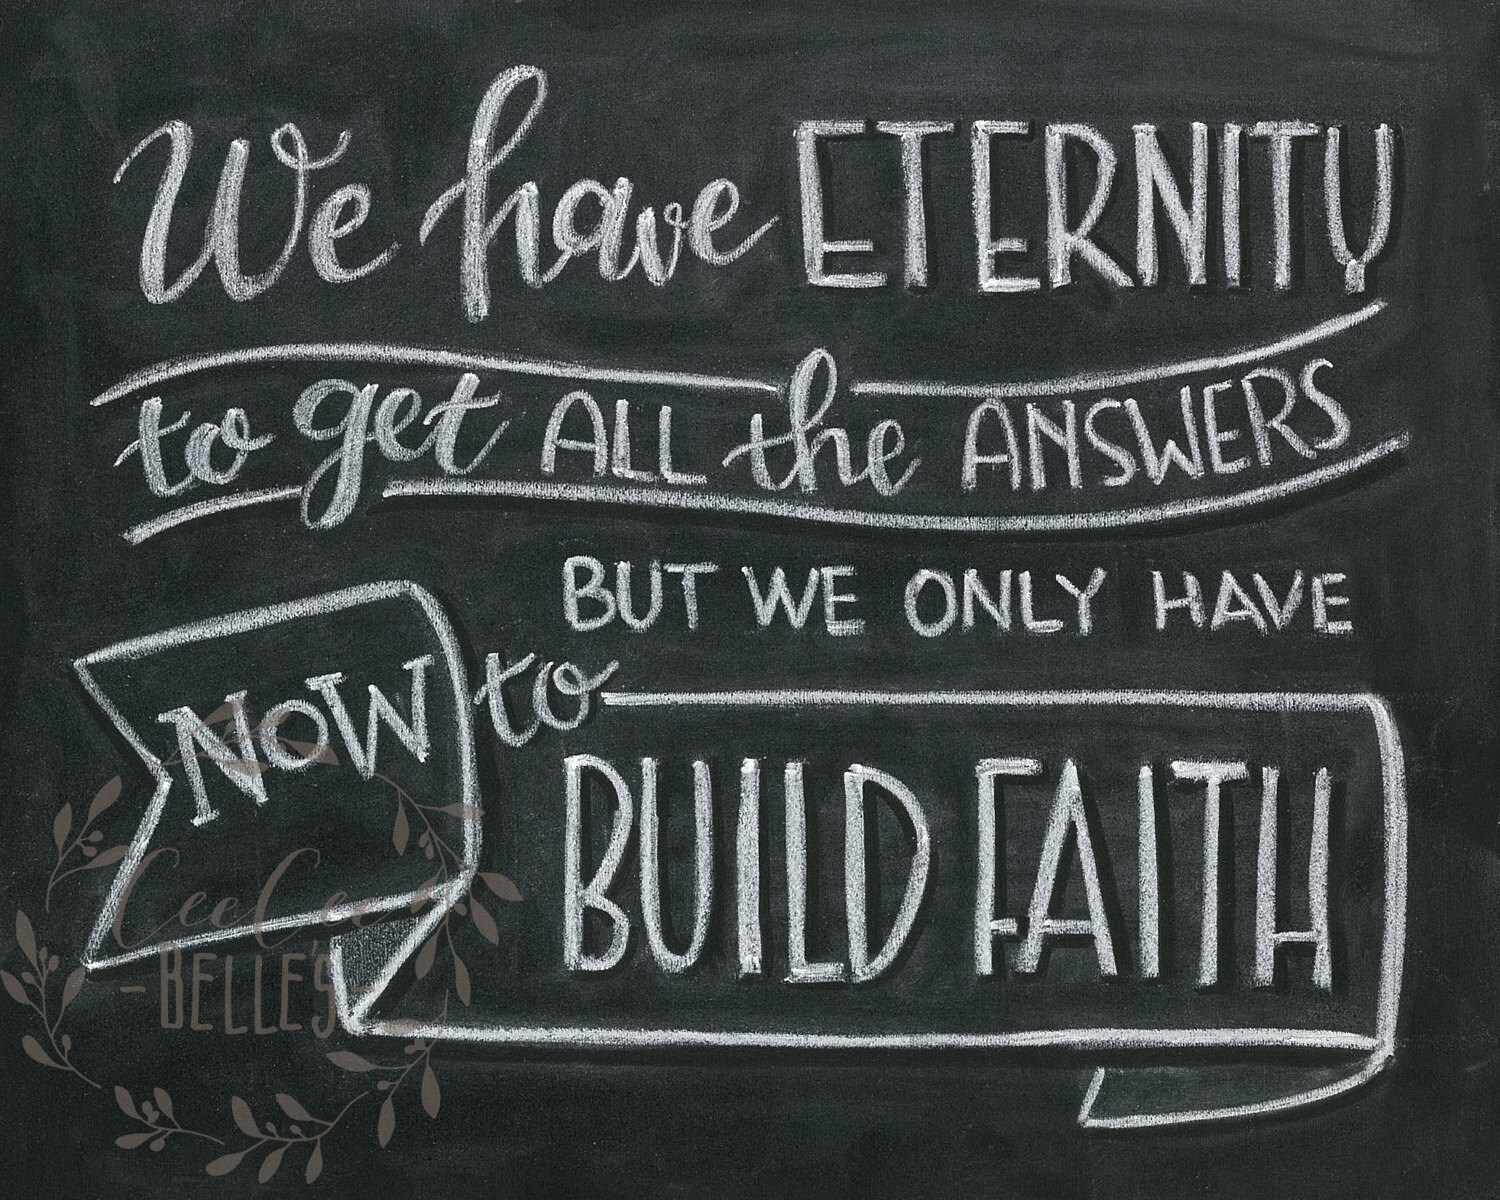 We have ETERNITY
to get ALL the ANSWERS
BUT WE ONLY HAVE
NOW to
BUILD FAITH
CeeCee
-BELLE'S-